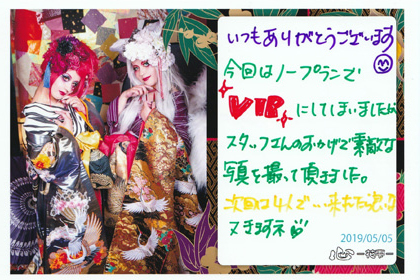 いつもありがとうございます
今回はノープランで
VIP
にしてしまいましたが
スタッフさんのおかげで素敵な
写真を撮って頂きました。
次回は4人で
来ます
2019/05/05
心 一花亭一